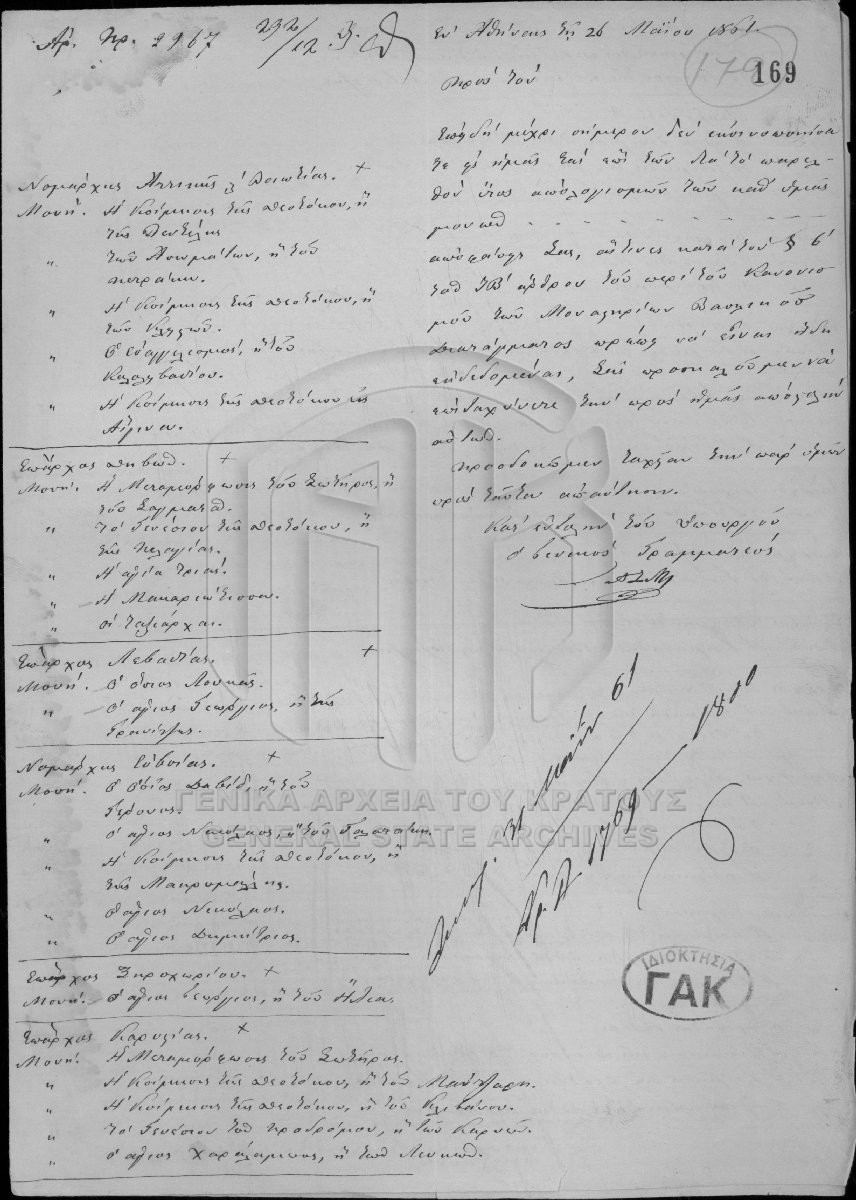 Αρ. Πρ. 2967
Εν Αθήναις τη 26 Μαΐου 1861.
179
169
Προς τον
Επειδή μέχρι σήμερον δεν εκοινοποιήσα
τε εις ημάς τας επί των του παρελ-
θού έτους απολογισμών των καθ' υμάς
μοναστ
αποφάσεις Σας, αίτινες κατά τον § 6'
του ΙΒ' άρθρου του περί του Κανονισ
μού των Μοναστηρίων Βασιλικού
Διατάγματος πρέπει να είναι ήδη
εκδεδομέναι, Σας προσκαλούμεν να
επιταχύνετε την προς ημάς αποστολήν
αυτών.
Προσδοκώμεν ταχείαν την παρ' υμών
προς ταύτα απάντησιν.
Κατ' εντολήν του Υπουργού
Ο Γενικός Γραμματεύς
Νομάρχης Αττικής κ' Βοιωτίας. +
Μονή. Η Κοίμησις της Θεοτόκου, ή
της Πεντέλης
" των Ασωμάτων, ή του
Πετράκη.
" Η Κοίμησις της Θεοτόκου, ή
των Κλειστών.
" Ο Ευαγγελισμός, ή του
" Η Κοίμησις της Θεοτόκου εις
Αίγιναν.
Επάρχος Θηβών. +
Μονή. Η Μεταμόρφωσις του Σωτήρος, ή
του Σαγματά.
" Το Γενέσιον της Θεοτόκου, ή
της Πελαγίας.
" Η αγία Τριάς.
" Η Μακαριώτισσα.
" Οι Ταξιάρχαι.
Επάρχος Λεβαδείας. +
Μονή. Ο όσιος Λουκάς.
" Ο άγιος Γεώργιος, ή της
Γρανίτσης.
Νομάρχης Ευβοίας. +
Μονή. Ο Όσιος Δαβίδ, ή του
Γέροντος.
" Ο άγιος Νικόλαος, ή του Γαλατάκη.
" Η Κοίμησις της Θεοτόκου, ή
της Μακρυμάλλης.
" Ο άγιος Νικόλαος.
" Ο άγιος Δημήτριος.
Επάρχος Ξηροχωρίου. +
Μονή. Ο άγιος Γεώργιος, ή του Ηλίας
Επάρχος Καρυστίας. +
Μονή. Η Μεταμόρφωσις του Σωτήρος.
" Η Κοίμησις της Θεοτόκου, ή του Μάντζαρη.
" Η Κοίμησις της Θεοτόκου, ή του Κλιβάνου.
" Το Γενέσιον του Προδρόμου, ή των Καρυών.
" Ο άγιος Χαράλαμπος, ή των Λευκών.
31 Μαΐου 61
ΓΕΝΙΚΑ ΑΡΧΕΙΑ ΤΟΥ ΚΡΑΤΟΥΣ
GENERAL STATE ARCHIVES
ΙΔΙΟΚΤΗΣΙΑ
ΓΑΚ